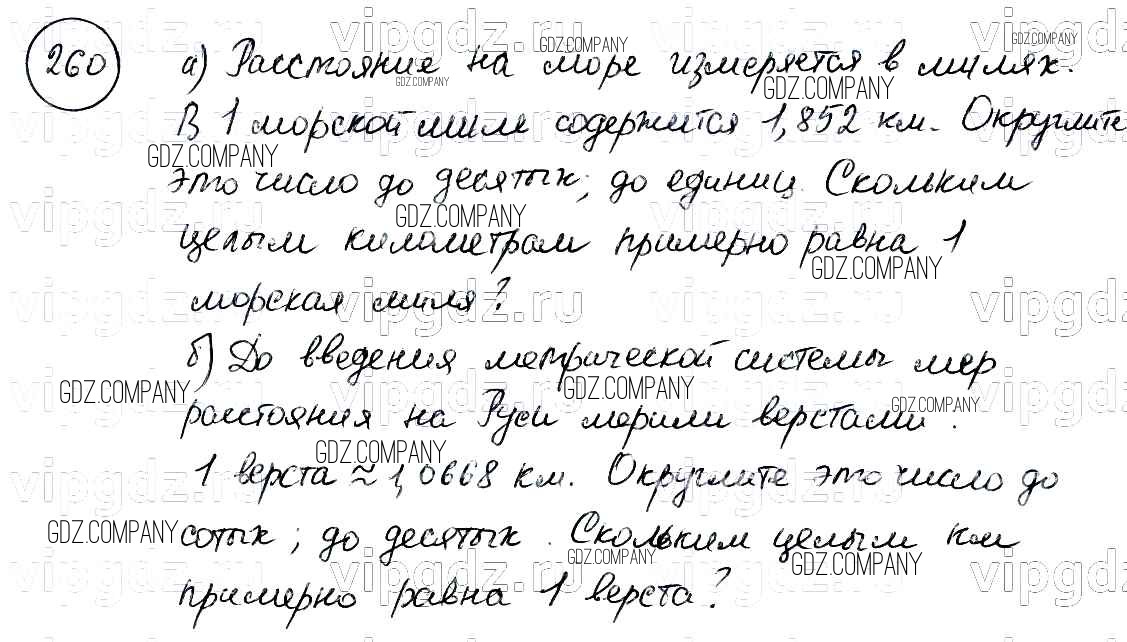 260 а) Расстояние на море измеряется в милях.
В 1 морской миле содержится 1,852 км. Округлите
это число до десятых; до единиц. Скольким
целым километрам примерно равна 1
морская миля?
б) До введения метрической системы мер
расстояния на Руси мерили верстами.
1 верста ≈ 1,0668 км. Округлите это число до
сотых; до десятых. Скольким целым км
примерно равна 1 верста?